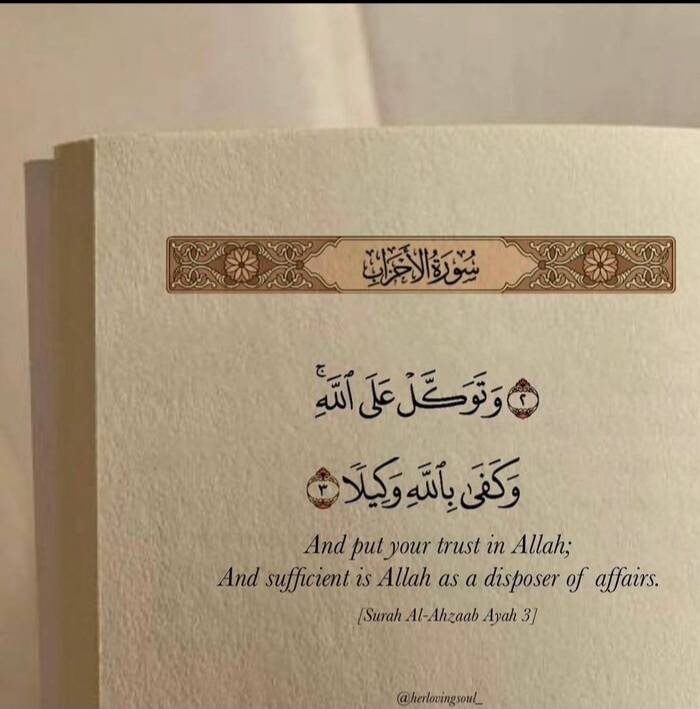 سُورَةُ الأَحْزَابِ
٢ وَتَوَكَّلْ عَلَى ٱللَّهِۚ
وَكَفَىٰ بِٱللَّهِ وَكِيلًا ٣
And put your trust in Allah;
And sufficient is Allah as a disposer of affairs.
[Surah Al-Ahzaab Ayah 3]
@herlovingsoul_